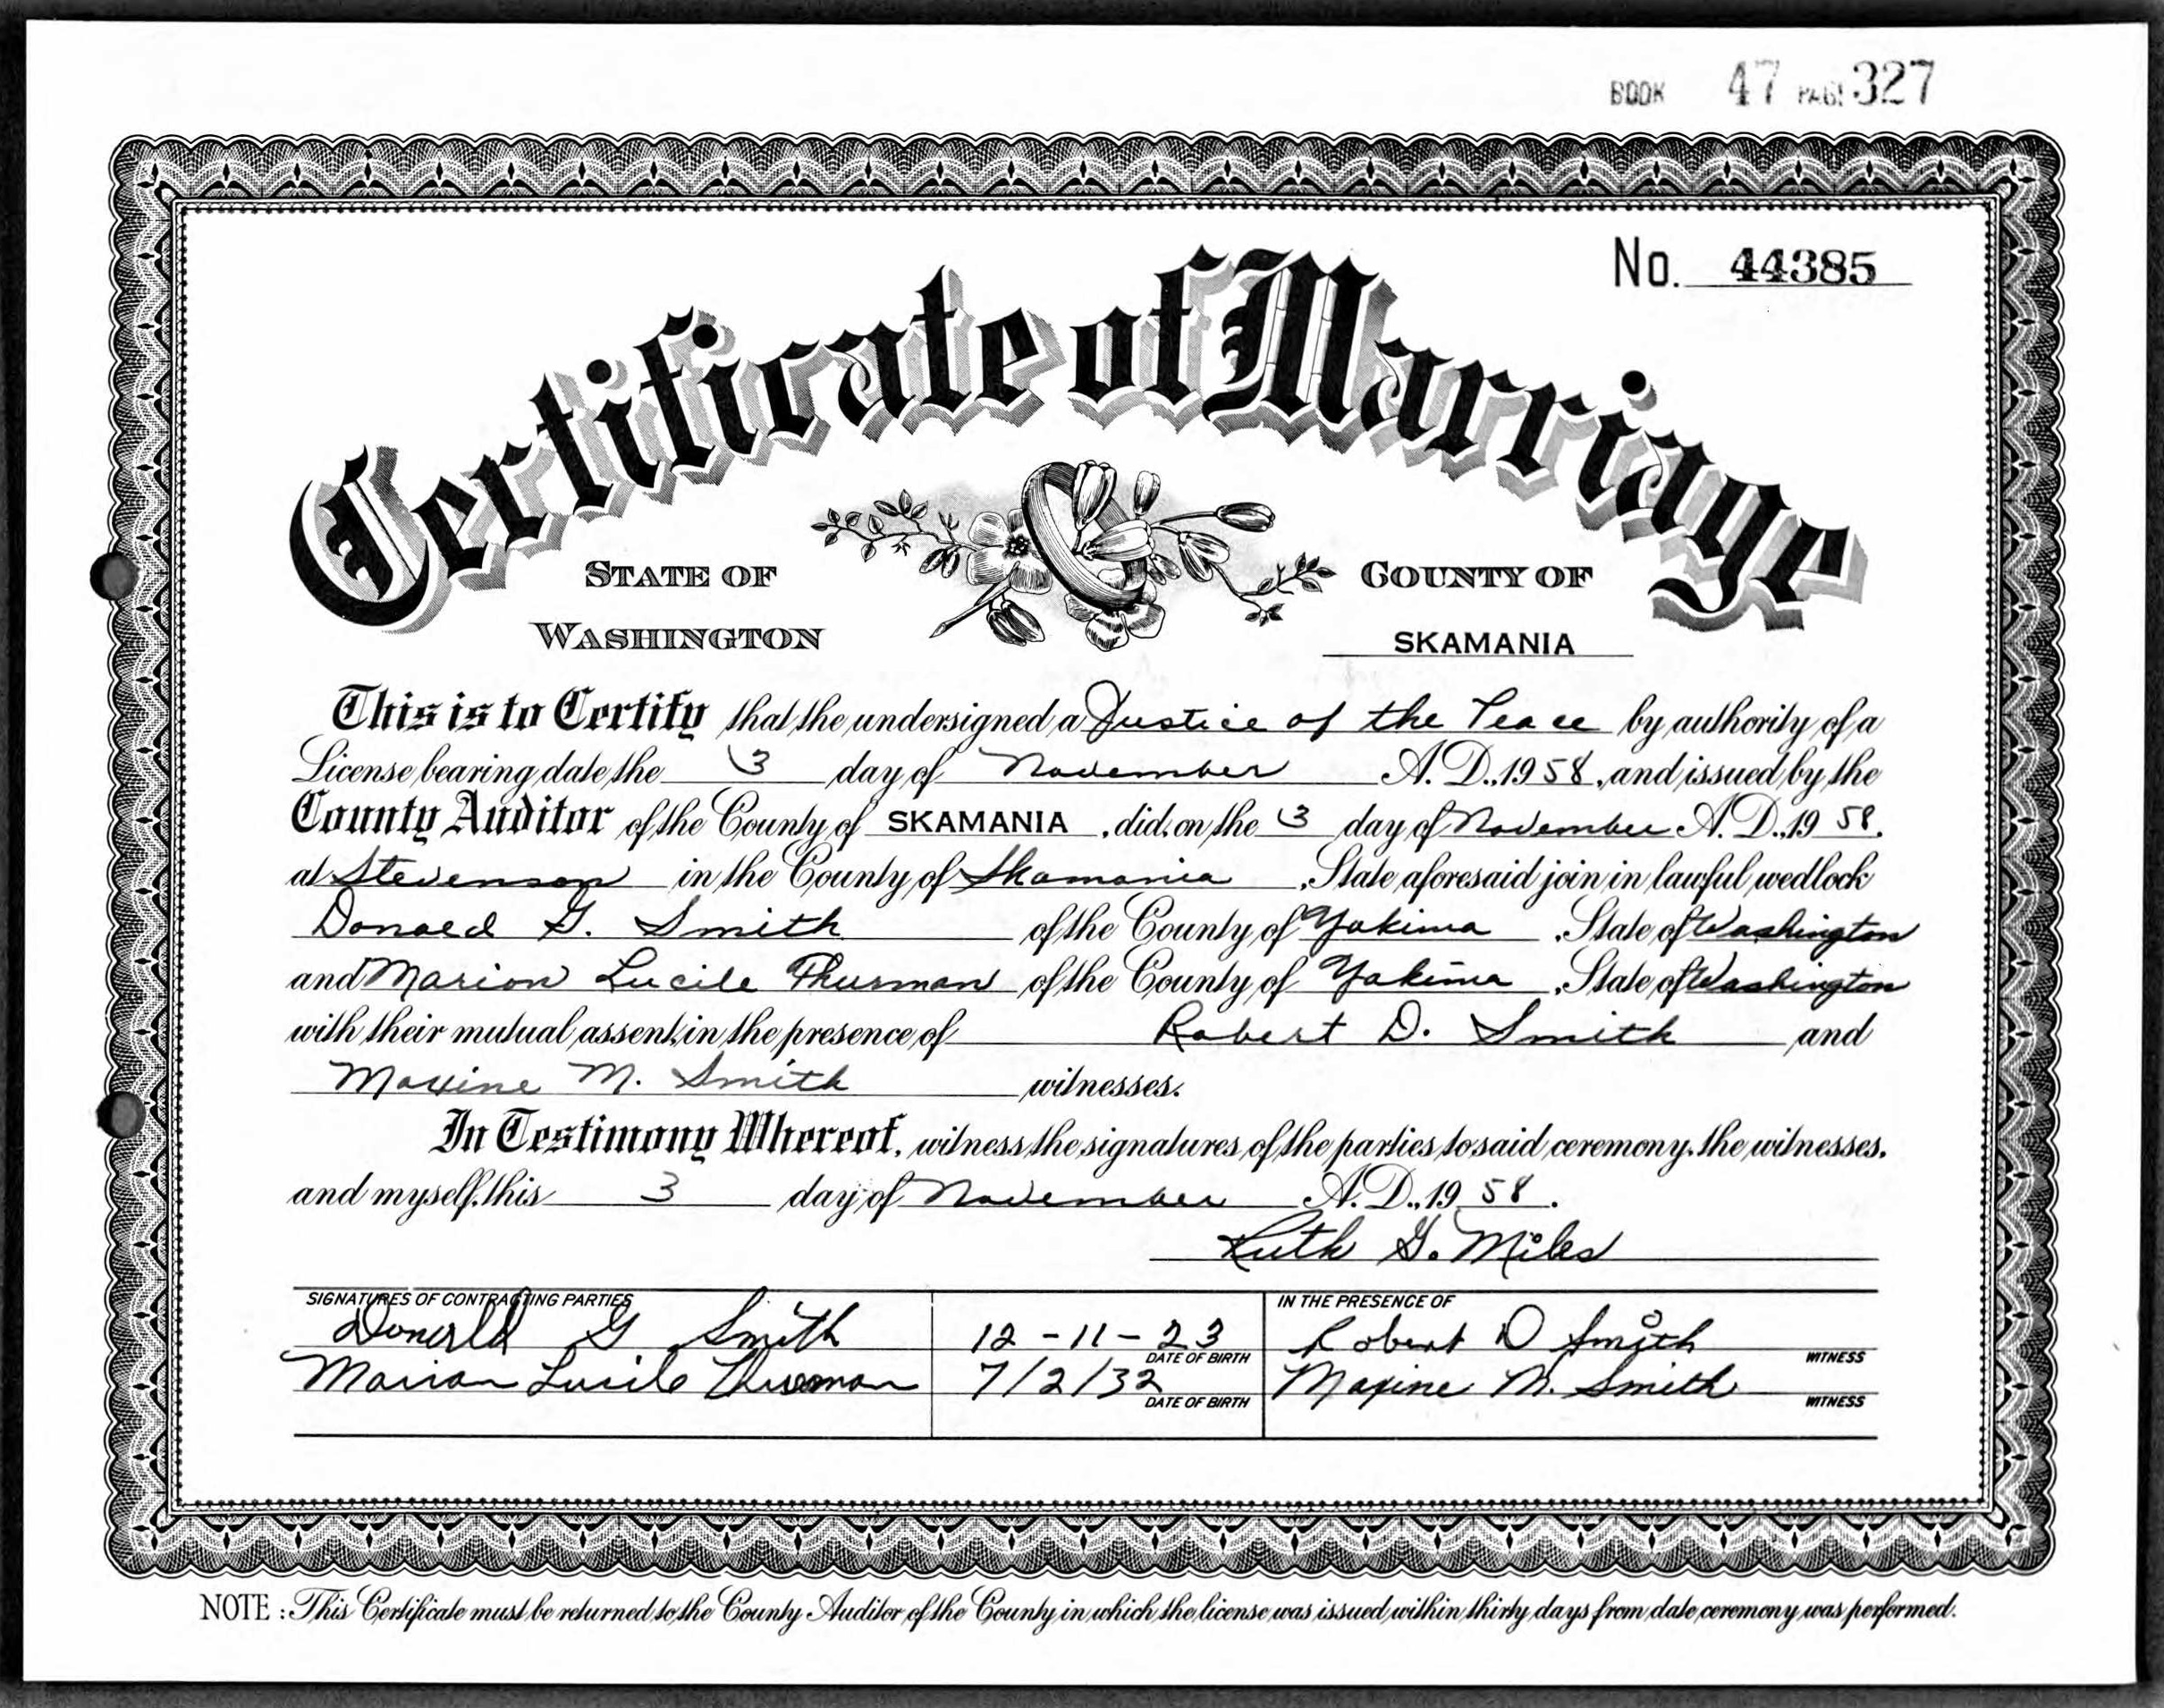 BOOK 47 PAGE 327
No. 44385
Certificate of Marriage
STATE OF WASHINGTON
COUNTY OF SKAMANIA
This is to Certify that the undersigned a Justice of the Peace by authority of a
License bearing date the 3 day of November A.D., 1958, and issued by the
County Auditor of the County of SKAMANIA, did, on the 3 day of November A.D., 19 58.
at Stevenson in the County of Skamania, State aforesaid join in lawful wedlock
Donald G. Smith of the County of Yakima, State of Washington
and Marion Lucile Thurman of the County of Yakima, State of Washington
with their mutual assent, in the presence of Robert D. Smith and
Maxine M. Smith witnesses.
In Testimony Whereof, witness the signatures of the parties to said ceremony, the witnesses,
and myself, this 3 day of November A.D., 19 58.
Ruth G. Miles
SIGNATURES OF CONTRACTING PARTIES
IN THE PRESENCE OF
Donald G Smith 12-11-23 Robert D Smith
DATE OF BIRTH WITNESS
Marion Lucile Thurman 7/2/32 Maxine M. Smith
DATE OF BIRTH WITNESS
NOTE: This Certificate must be returned to the County Auditor of the County in which the license was issued within thirty days from date ceremony was performed.